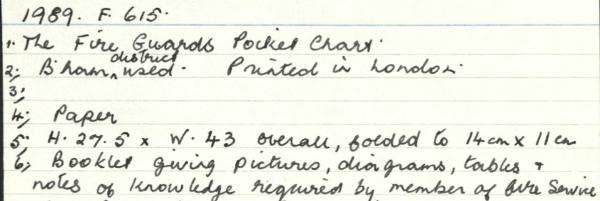 1989. F. 615.
1. The Fire Guards Pocket Chart.
2; B'ham district used. Printed in London.
3;
4; Paper
5; H. 27.5 x W. 43 overall, folded to 14cm x 11cm
6; Booklet giving pictures, diagrams, tables +
notes of knowledge required by member of Fire Service